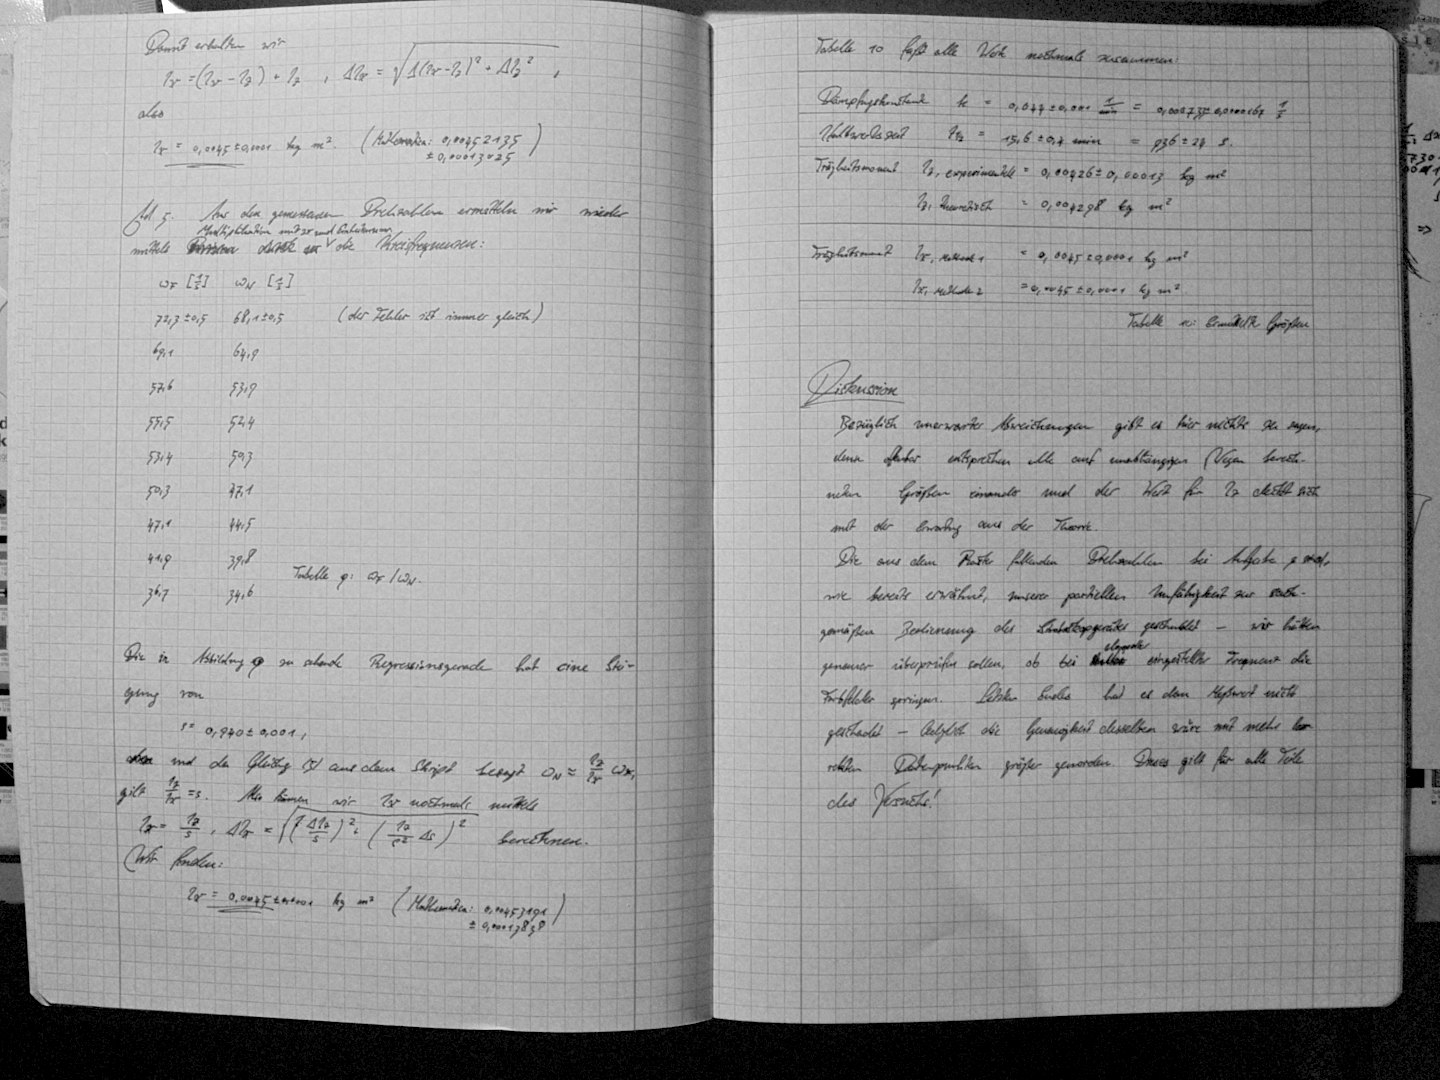 Damit erhalten wir
I_x = (I_x - I_z) + I_z , ΔI_x = √(Δ(I_x-I_z)² + ΔI_z²) ,
also
I_x = 0,0045 ± 0,0001 kg m². (Mathematica: 0,00452135
± 0,00013025)
Ad 5. Aus den gemessenen Drehzahlen ermitteln wir wieder
Multiplikation mit 2π und
mittels die Kreisfrequenzen:
ω_F [1/s] ω_N [1/s]
72,3 ± 0,5 68,1 ± 0,5 (der Fehler ist immer gleich)
69,1 64,9
57,6 53,9
55,5 52,4
53,4 50,3
50,3 47,1
47,1 44,5
41,9 39,8
36,7 34,6
Tabelle 9: ω_F / ω_N.
Die in Abbildung 9 zu sehende Regressionsgerade hat eine Stei-
gung von
s = 0,940 ± 0,001 ,
und da Gleichung aus dem Skript besagt ω_N ≈ I_z/I_x ω_F,
gilt I_z/I_x = s. Also können wir I_x nochmals mittels
I_x = I_z/s , ΔI_x = √((ΔI_z/s)² + (I_z/s² Δs)²) berechnen.
Wir finden:
I_x = 0,0045 ± 0,0001 kg m² (Mathematica: 0,00453191
± 0,00013838)
Tabelle 10 faßt alle Werte nochmals zusammen:
Dämpfungskonstante k = 0,044 ± 0,001 1/min = 0,000735 ± 0,0000167 1/s
Halbwertszeit t_½ = 15,6 ± 0,4 min = 936 ± 24 s.
Trägheitsmoment I_z, experimentell = 0,00426 ± 0,00013 kg m²
I_z, theoretisch = 0,004298 kg m²
Trägheitsmoment I_x, Methode 1 = 0,0045 ± 0,0001 kg m²
I_x, Methode 2 = 0,0045 ± 0,0001 kg m²
Tabelle 10: Ermittelte Größen
Diskussion
Bezüglich unerwarteter Abweichungen gibt es hier nichts zu sagen,
denn entsprechen alle auf unabhängigen Wegen berech-
neten Größen einander und der Wert für I_z deckt sich
mit der Erwartung aus der Theorie.
Die aus dem Raster fallenden Drehzahlen bei Aufgabe sind,
wie bereits erwähnt, unserer partiellen Unfähigkeit zur sach-
gemäßen Bedienung des geschuldet – wir hätten
genauer überprüfen sollen, ob bei eingestellter Frequenz die
Farbfelder springen. Letzten Endes hat es dem Meßwert nicht
geschadet – lediglich die Genauigkeit desselben wäre mit mehr kor-
rekten Datenpunkten größer geworden. Dieses gilt für alle Teile
des Versuchs!